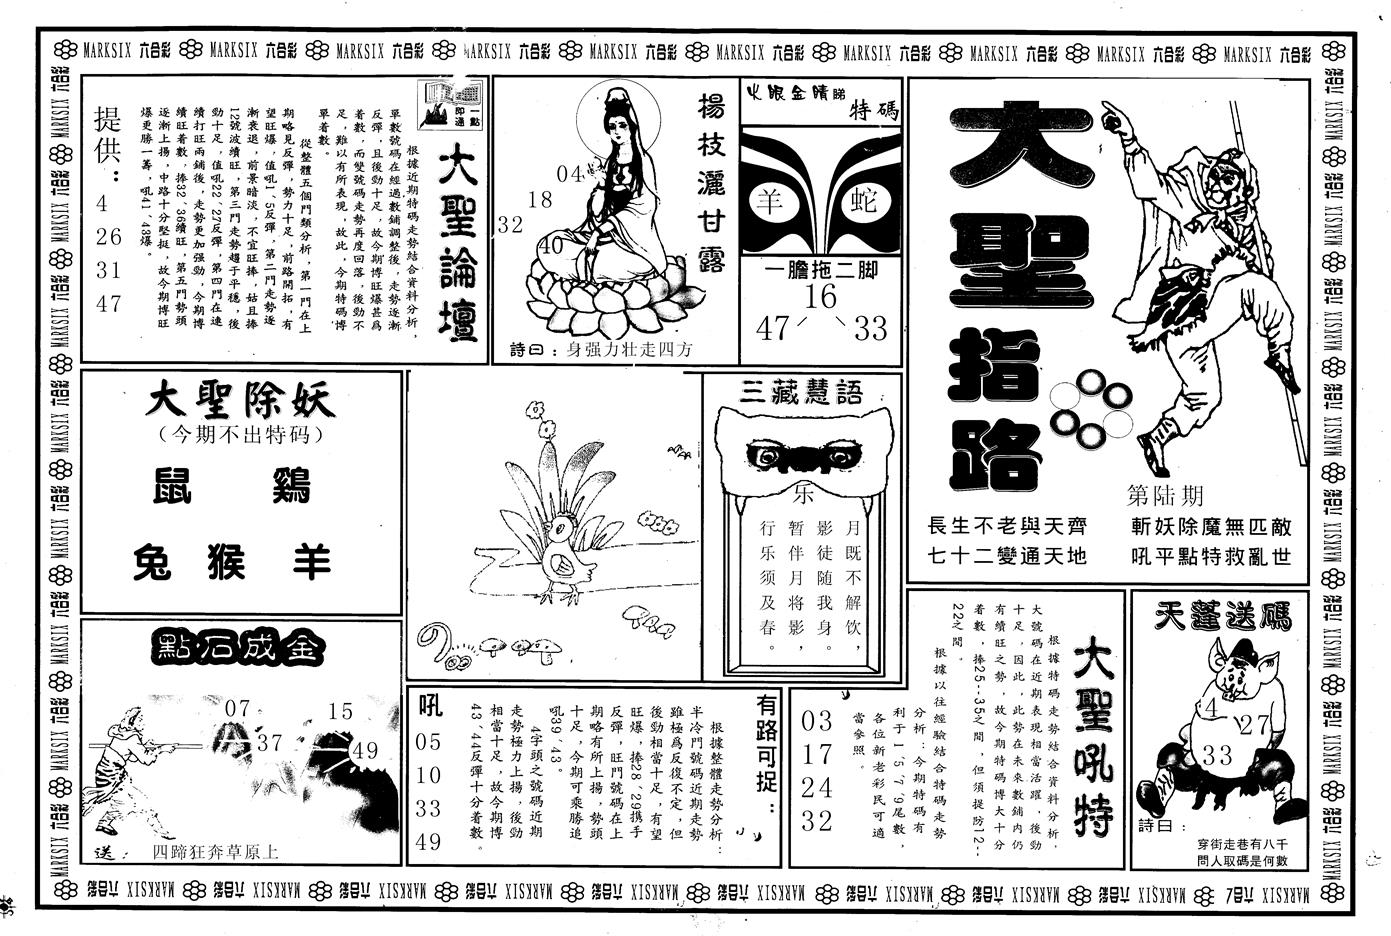 MARKSIX 六合彩 MARKSIX 六合彩 MARKSIX 六合彩 MARKSIX 六合彩 MARKSIX 六合彩 MARKSIX 六合彩 MARKSIX 六合彩 MARKSIX 六合彩 MARKSIX 六合彩 MARKSIX 六合彩
一點
即通
大聖論壇
根據近期特碼走勢結合資料分析，
單數號碼在經過數鋪調整後，走勢逐漸
反彈，且後勁十足，故今期博旺爆甚爲
着數，而雙號碼走勢再度回落，後勁不
足，難以有所表現，故此，今期特碼博
單着數。
從整體五個門類分析，第一門在上
期略見反彈，勢力十足，前路開拓，有
望旺爆，值吼1、5反彈，第二門走勢逐
漸衰退，前景暗淡，不宜旺捧，姑且捧
12號波續旺，第三門走勢趨于平穩，後
勁十足，值吼22、27反彈，第四門在連
續打旺兩鋪後，走勢更加强勁，今期博
續旺着數，捧32、36續旺，第五門勢頭
逐漸上揚，中路十分堅挺，故今期博旺
爆更勝一籌，吼41、43爆。
提供：
4
26
31
47
楊枝灑甘露
04
18
32
40
詩曰：身强力壮走四方
火眼金睛睇
特碼
羊 蛇
一膽拖二脚
16
47 33
大聖指路
第陆期
長生不老與天齊 斬妖除魔無匹敵
七十二變通天地 吼平點特救亂世
大聖除妖
（今期不出特码）
鼠 鷄
兔 猴 羊
三藏慧語
乐
月既不解饮，
影徒随我身。
暂伴月将影，
行乐须及春。
點石成金
07
37
15
49
送：四蹄狂奔草原上
有路可捉：
根據整體走勢分析：
半冷門號碼近期走勢
雖極爲反復不定，但
後勁相當十足，有望
旺爆，捧28、29携手
反彈，旺門號碼在上
期略有所上揚，勢頭
十足，今期可乘勝追
吼39、43。
4字頭之號碼近期
走勢極力上揚，後勁
相當十足，故今期博
43、44反彈十分着數。
吼
05
10
33
49
大聖吼特
根據特碼走勢結合資料分析，
大號碼在近期表現相當活躍，後勁
十足，因此，此勢在未來數鋪内仍
有續旺之勢，故今期特碼博大十分
着數，捧25--35之間，但須提防12--
22之間。
根據以往經驗結合特碼走勢
分析：今期特碼有
利于1、5、7、9尾數，
各位新老彩民可適
當參照。
03
17
24
32
天蓬送碼
4
27
33
詩曰：
穿街走巷有八千
問人取碼是何數